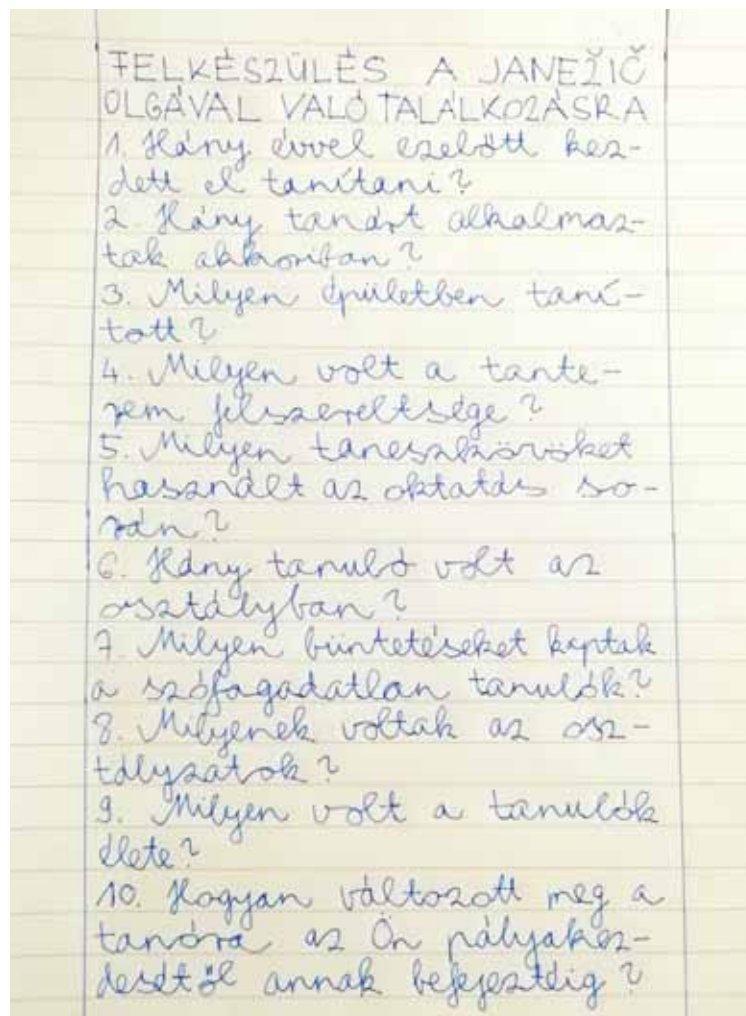 FELKÉSZÜLÉS A JANEŽIČ
OLGÁVAL VALÓ TALÁLKOZÁSRA
1. Hány évvel ezelőtt kez-
dett el tanítani?
2. Hány tanárt alkalmaz-
tak akkoriban?
3. Milyen épületben taní-
tott?
4. Milyen volt a tante-
rem felszereltsége?
5. Milyen taneszközöket
használt az oktatás so-
rán?
6. Hány tanuló volt az
osztályban?
7. Milyen büntetéseket kaptak
a szófogadatlan tanulók?
8. Milyenek voltak az osz-
tályzatok?
9. Milyen volt a tanulók
élete?
10. Hogyan változott meg a
tanóra az Ön pályakez-
desétől annak befejeztéig?